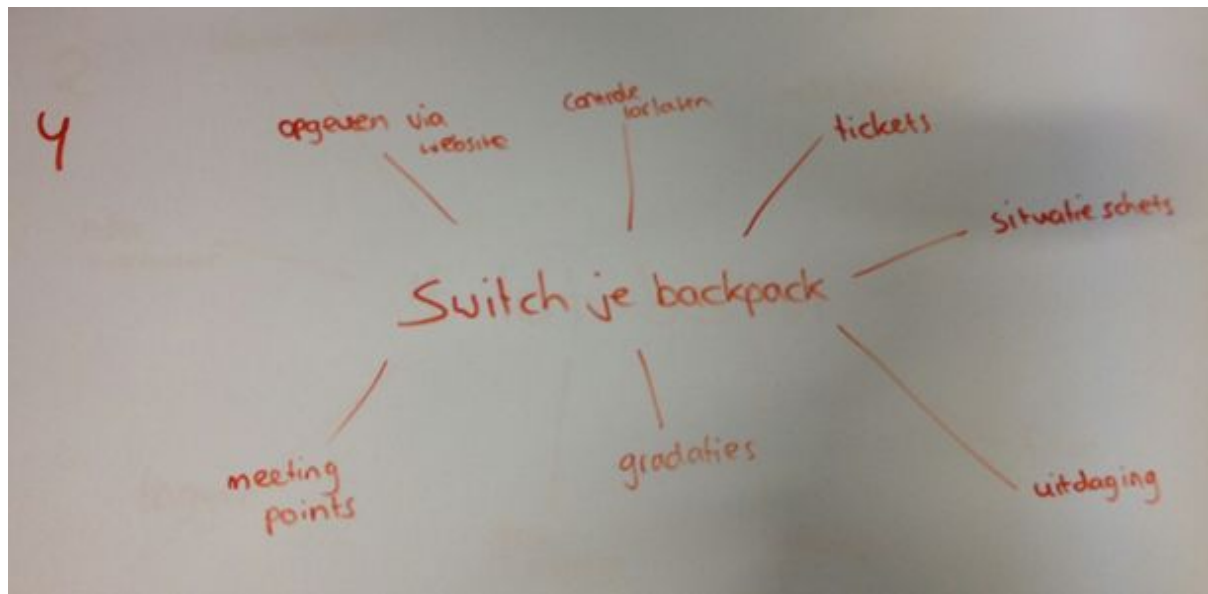 4
opgeven via
website
controle
loslaten
tickets
situatie schets
Switch je backpack
meeting
points
gradaties
uitdaging